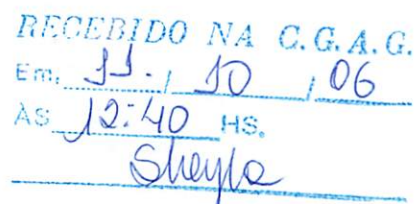 RECEBIDO NA C.G.A.G.
Em, 11. / 10 / 06
ÀS 12:40 HS.
Sheyla